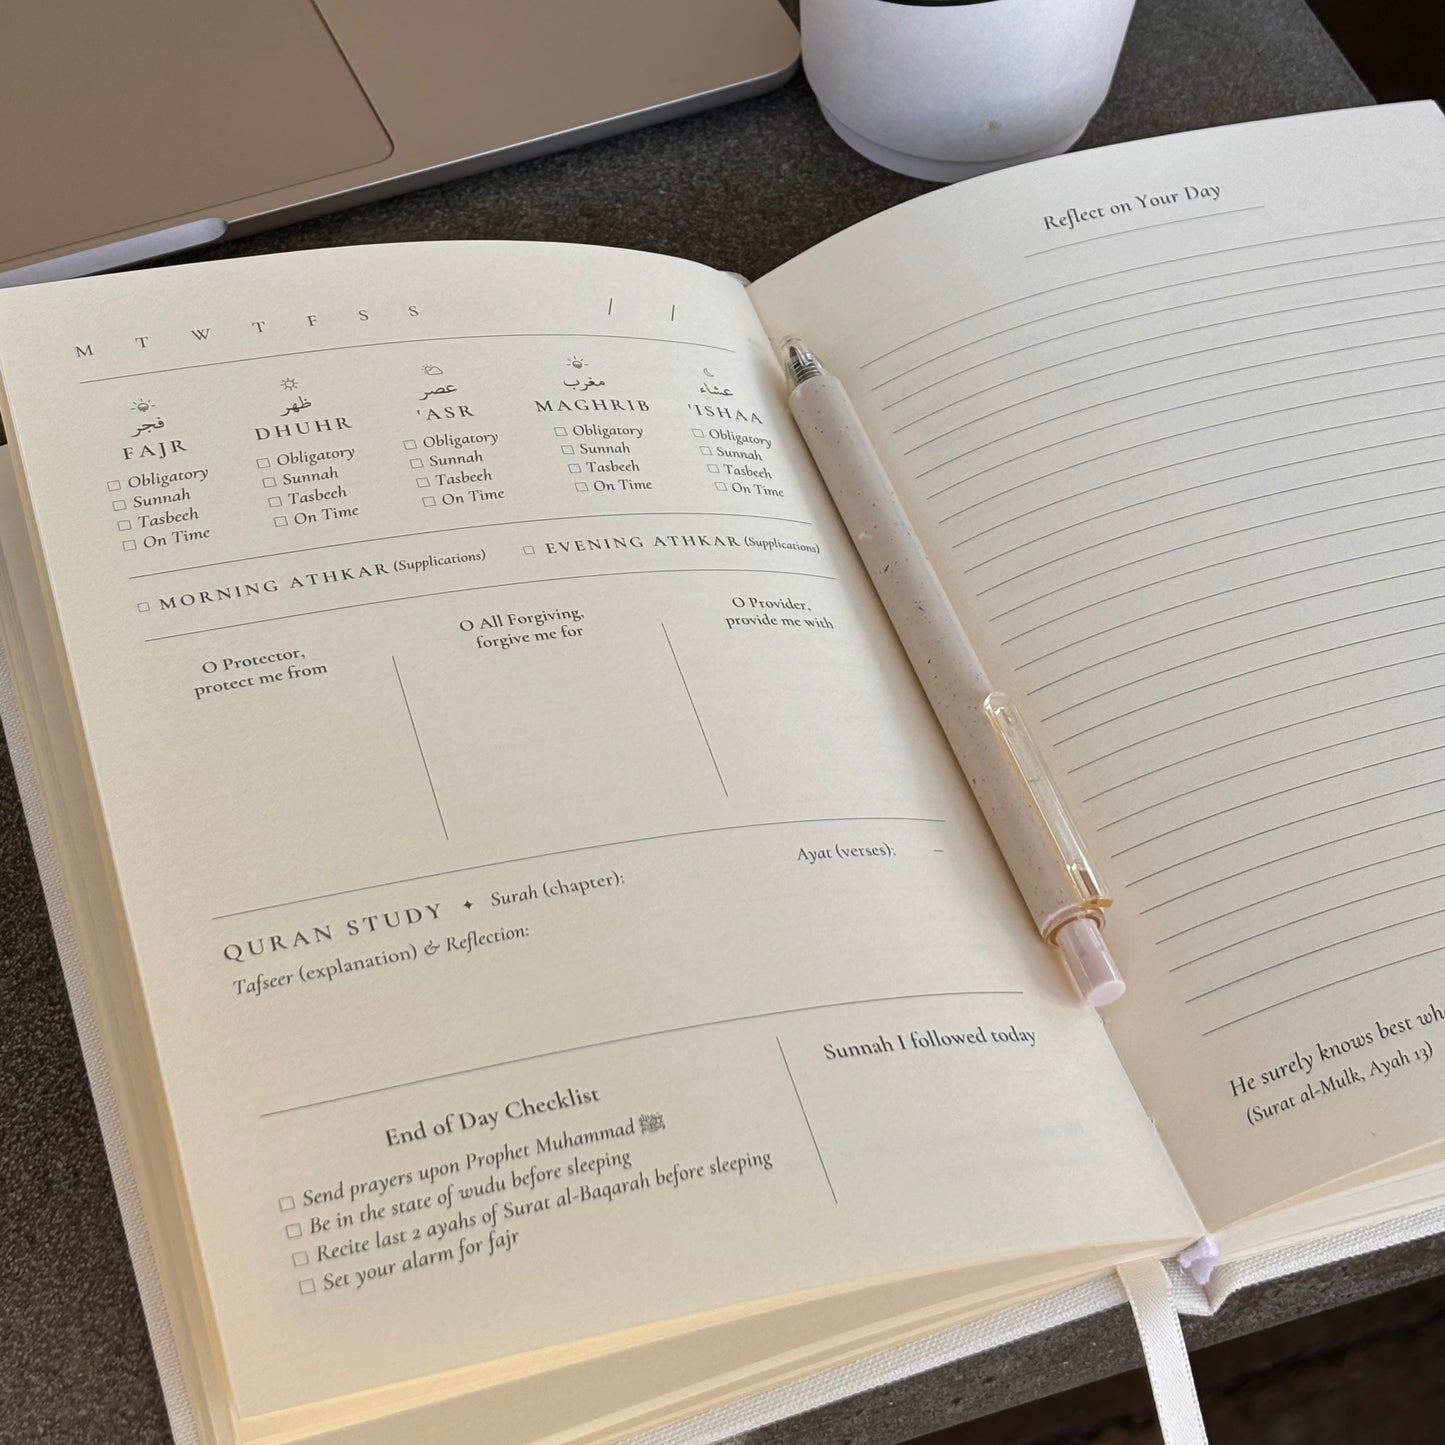 M T W T F S S / /
فجر
FAJR
Obligatory
Sunnah
Tasbeeh
On Time
ظهر
DHUHR
Obligatory
Sunnah
Tasbeeh
On Time
عصر
'ASR
Obligatory
Sunnah
Tasbeeh
On Time
مغرب
MAGHRIB
Obligatory
Sunnah
Tasbeeh
On Time
عشاء
'ISHAA
Obligatory
Sunnah
Tasbeeh
On Time
MORNING ATHKAR (Supplications)
EVENING ATHKAR (Supplications)
O Protector,
protect me from
O All Forgiving,
forgive me for
O Provider,
provide me with
QURAN STUDY ✦ Surah (chapter): Ayat (verses): –
Tafseer (explanation) & Reflection:
End of Day Checklist
Send prayers upon Prophet Muhammad ﷺ
Be in the state of wudu before sleeping
Recite last 2 ayahs of Surat al-Baqarah before sleeping
Set your alarm for fajr
Sunnah I followed today
Reflect on Your Day
He surely knows best
(Surat al-Mulk, Ayah 13)